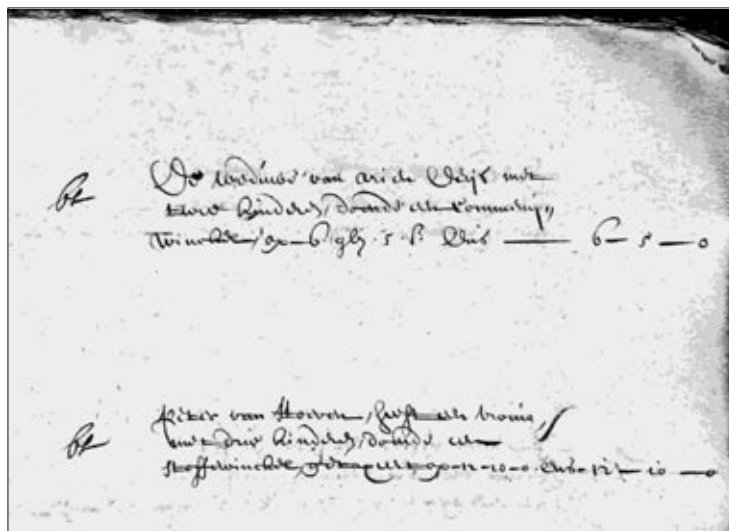 De weduwe van Arien Derijs met
bt twee kinderen, doende een Commenijs
winckel, op 6 gls 5 s. dus — 6 — 5 — 0
Pieter van Hoeven, heeft een vrouw,
bt met drie kinderen, doende een
stoffewinckel getaxeert op 12-10-0 dus 12 — 10 — 0